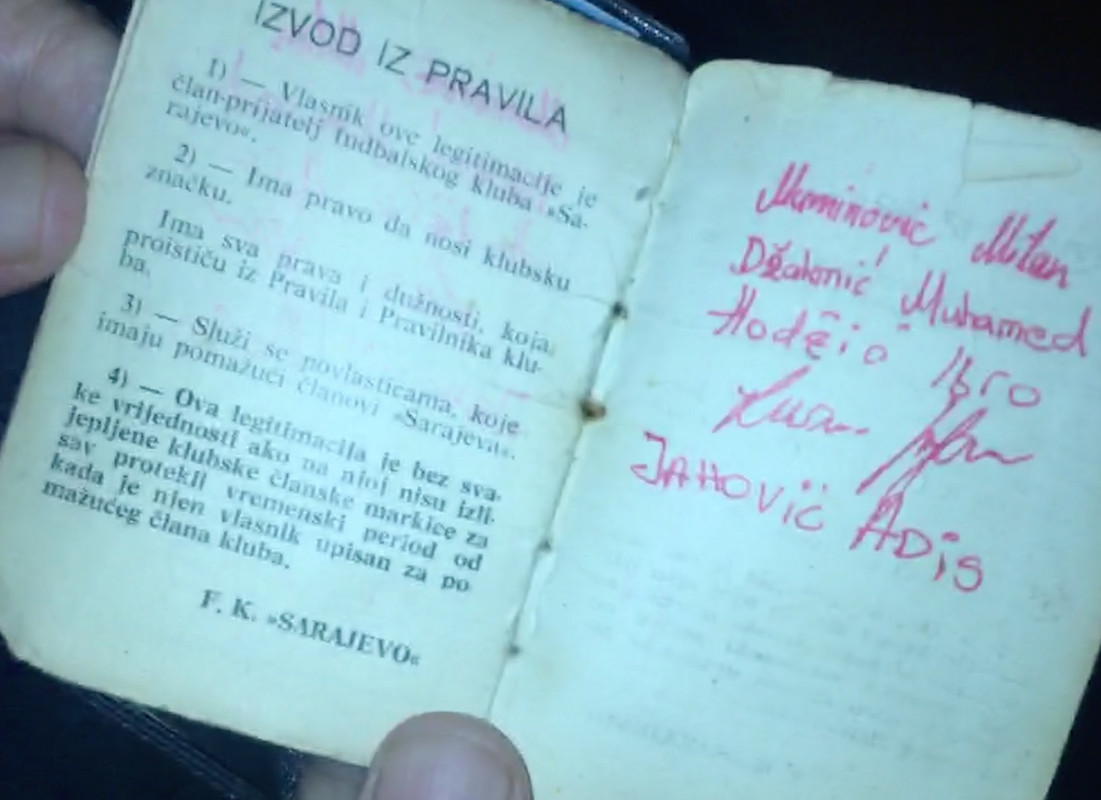 IZVOD IZ PRAVILA
1) — Vlasnik ove legitimacije je
član-prijatelj fudbalskog kluba »Sa-
rajevo«.
2) — Ima pravo da nosi klubsku
značku.
Ima sva prava i dužnosti, koja
proističu iz Pravila i Pravilnika klu-
ba.
3) — Služi se povlasticama, koje
imaju pomažući članovi »Sarajeva«.
4) — Ova legitimacija je bez sva-
ke vrijednosti ako na njoj nisu izli-
jepljene klubske članske markice za
sav protekli vremenski period od
kada je njen vlasnik upisan za po-
mažućeg člana kluba.
F. K. »SARAJEVO«
Milan
Muhamed
Ibro
JAHOVić ADiS